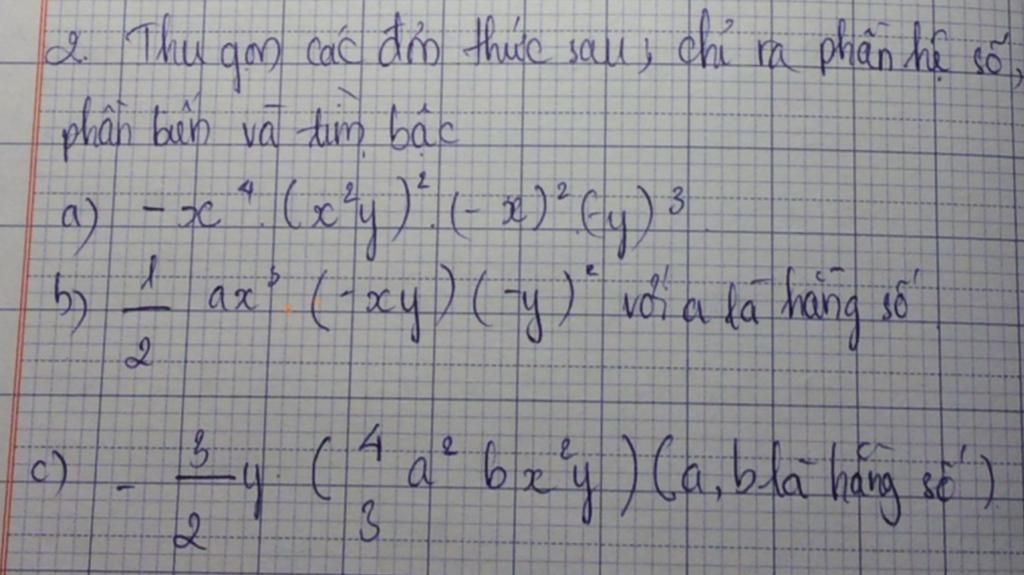 2. Thu gọn các đơn thức sau, chỉ ra phần hệ số,
phần biến và tìm bậc
a) -x⁴.(x²y)².(-x)²(-y)³
b) 1/2 ax³.(-xy)(-y)² với a là hằng số
c) - 3/2 y.(4/3 a²bx²y) (a, b là hằng số)